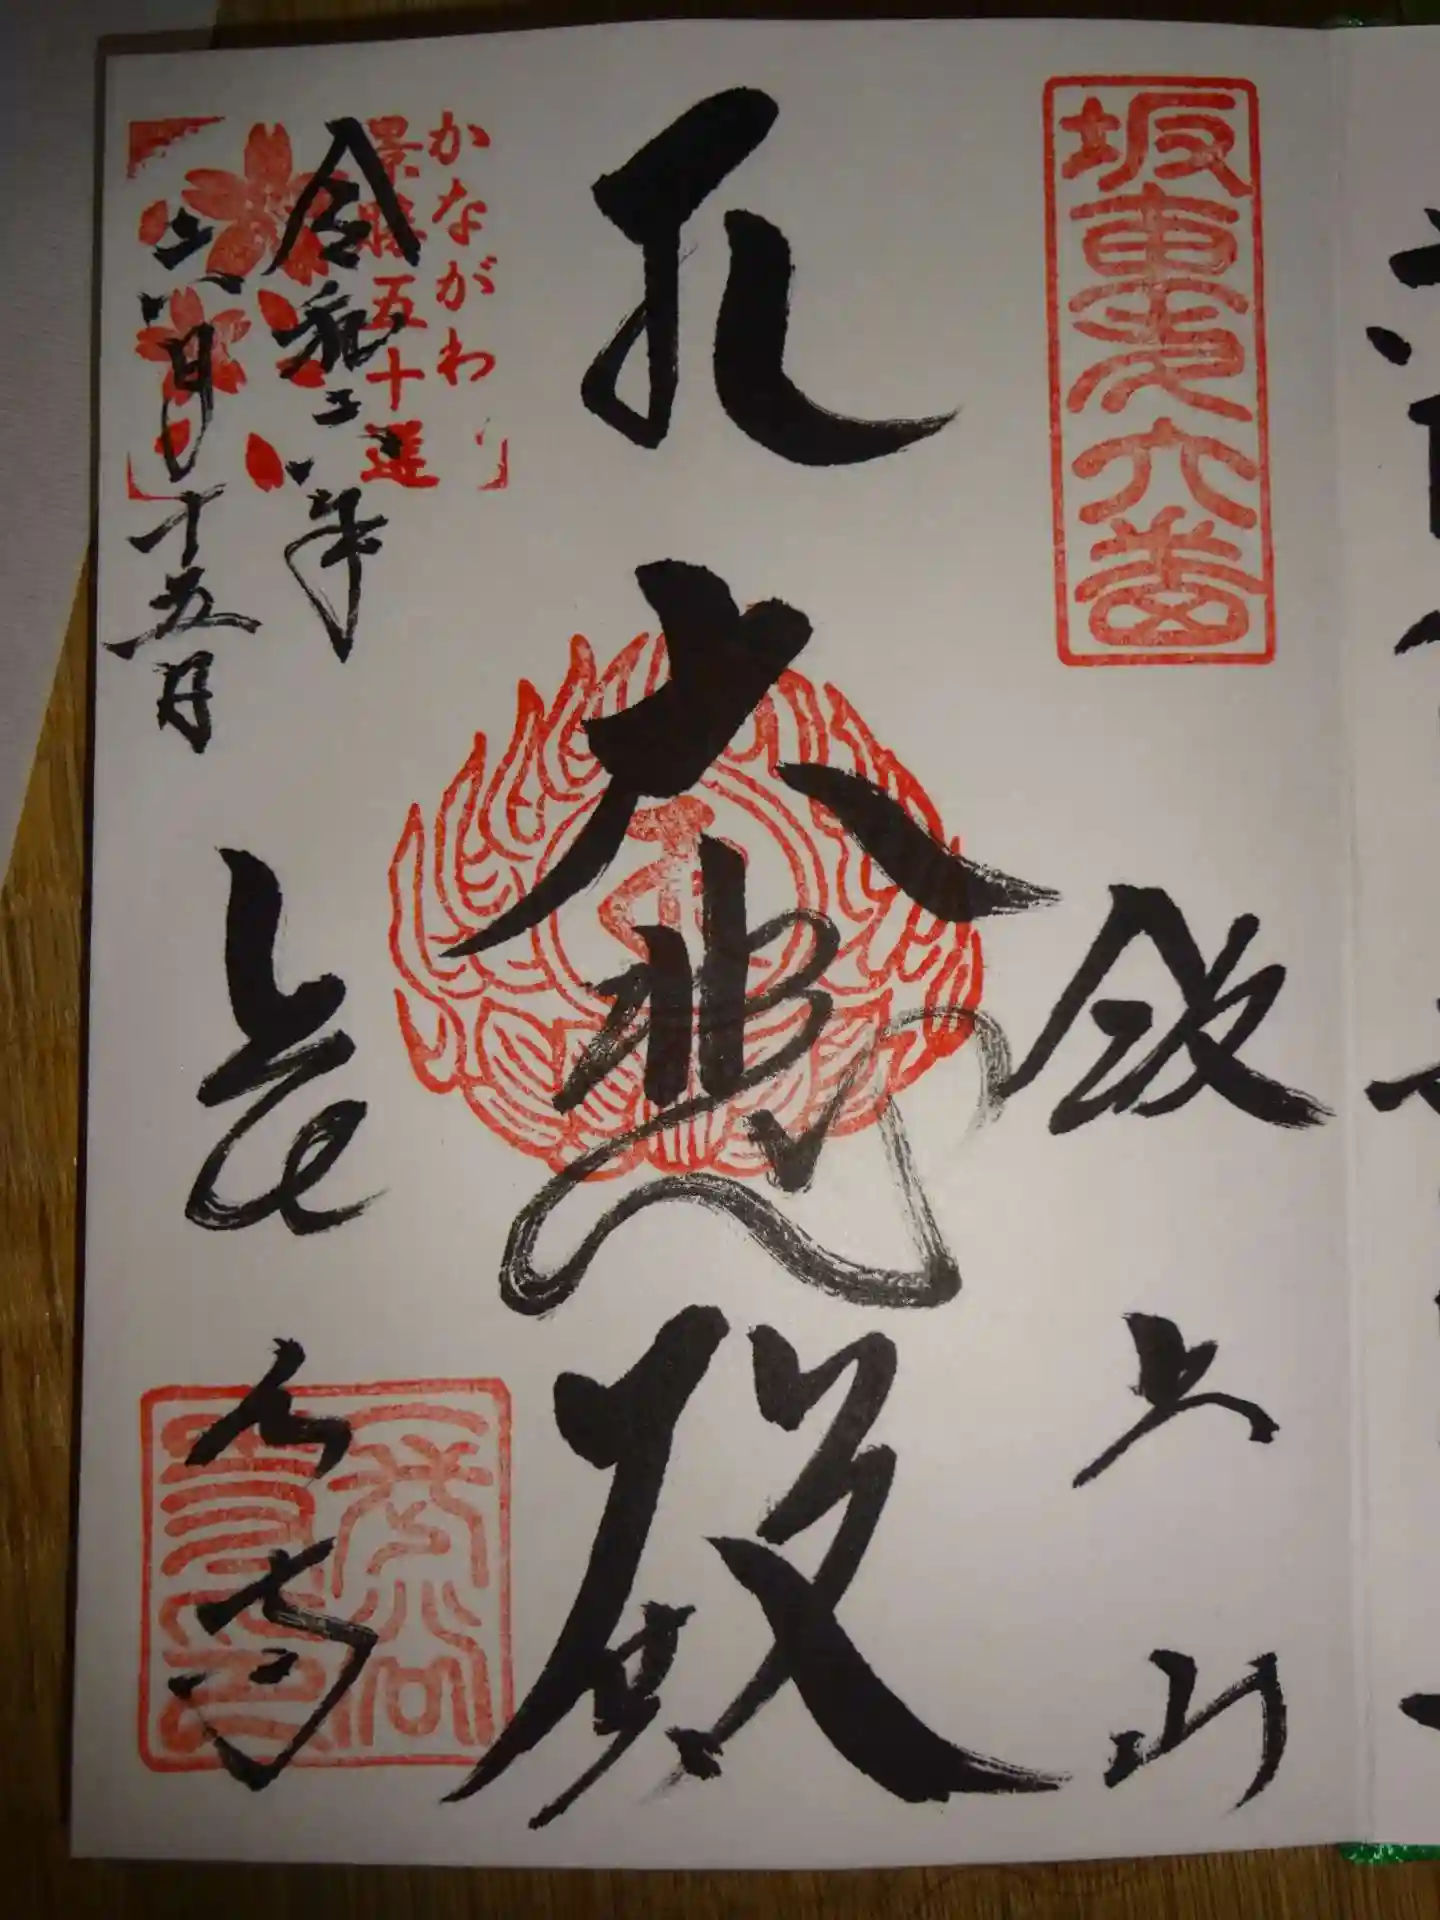 坂東第六番
飯上山
大悲殿
かながわの
景勝五十選
令和六年
六月十五日
長谷寺